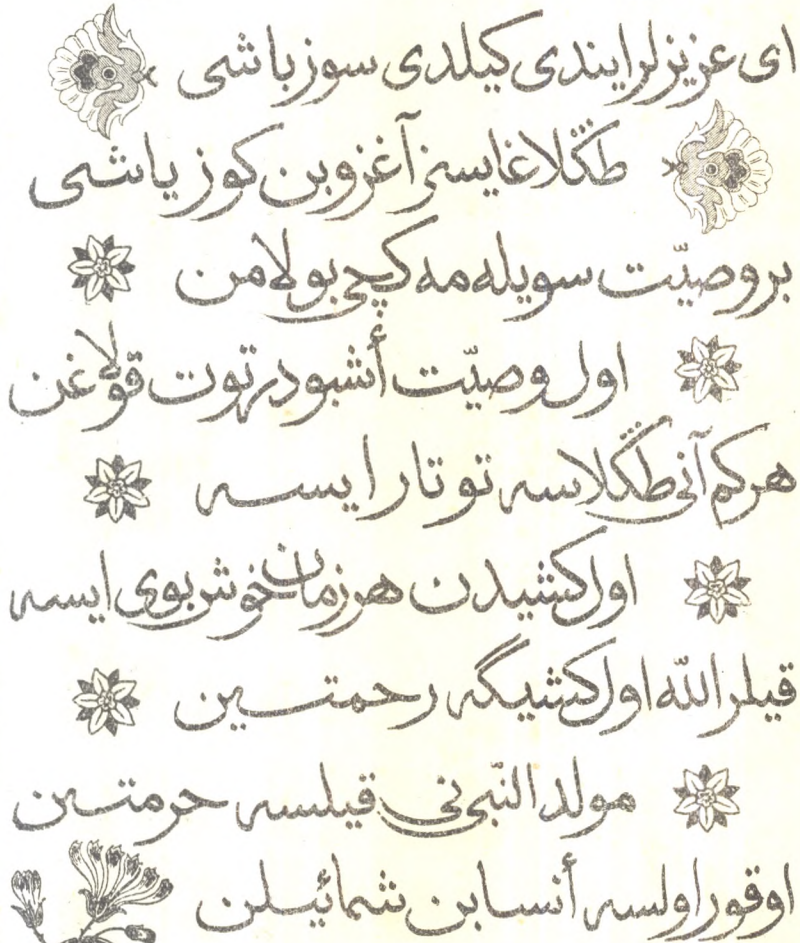 ای عزیزلر ایندی کیلدی سوز باشی
طڭلاغایسز آغزوبن کوز یاشی
بر وصیّت سویله مه کچی بولامن
اول وصیّت أشبودر توت قولاغن
هر کم آنی طڭلاسه توتار ایسه
اول کشیدن هر زمان خوش بوی ایسه
قیلر الله اول کشیگه رحمتین
مولد النبی نی قیلسه حرمتین
اوقور اولسه أنسابن شمائیلن